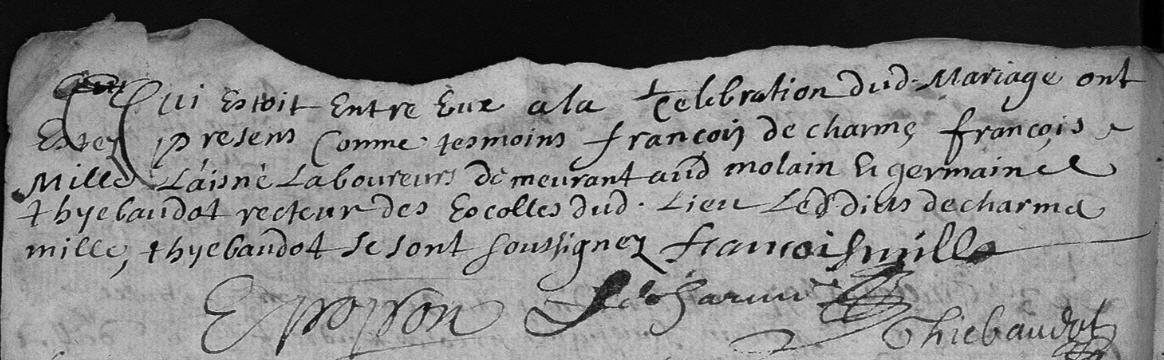 Qui Estoit Entre Eux a la Celebration dud. Mariage ont
Estez presens Comme tesmoins francois de charme francois
Mille L'aisné Laboureurs demeurant aud molain Et germaine
thyebaudot recteur des Escolles dud. Lieu Lesd dits de charme
mille, thyebaudot se sont soussignez francois mille
F de charme
Thiebaudot